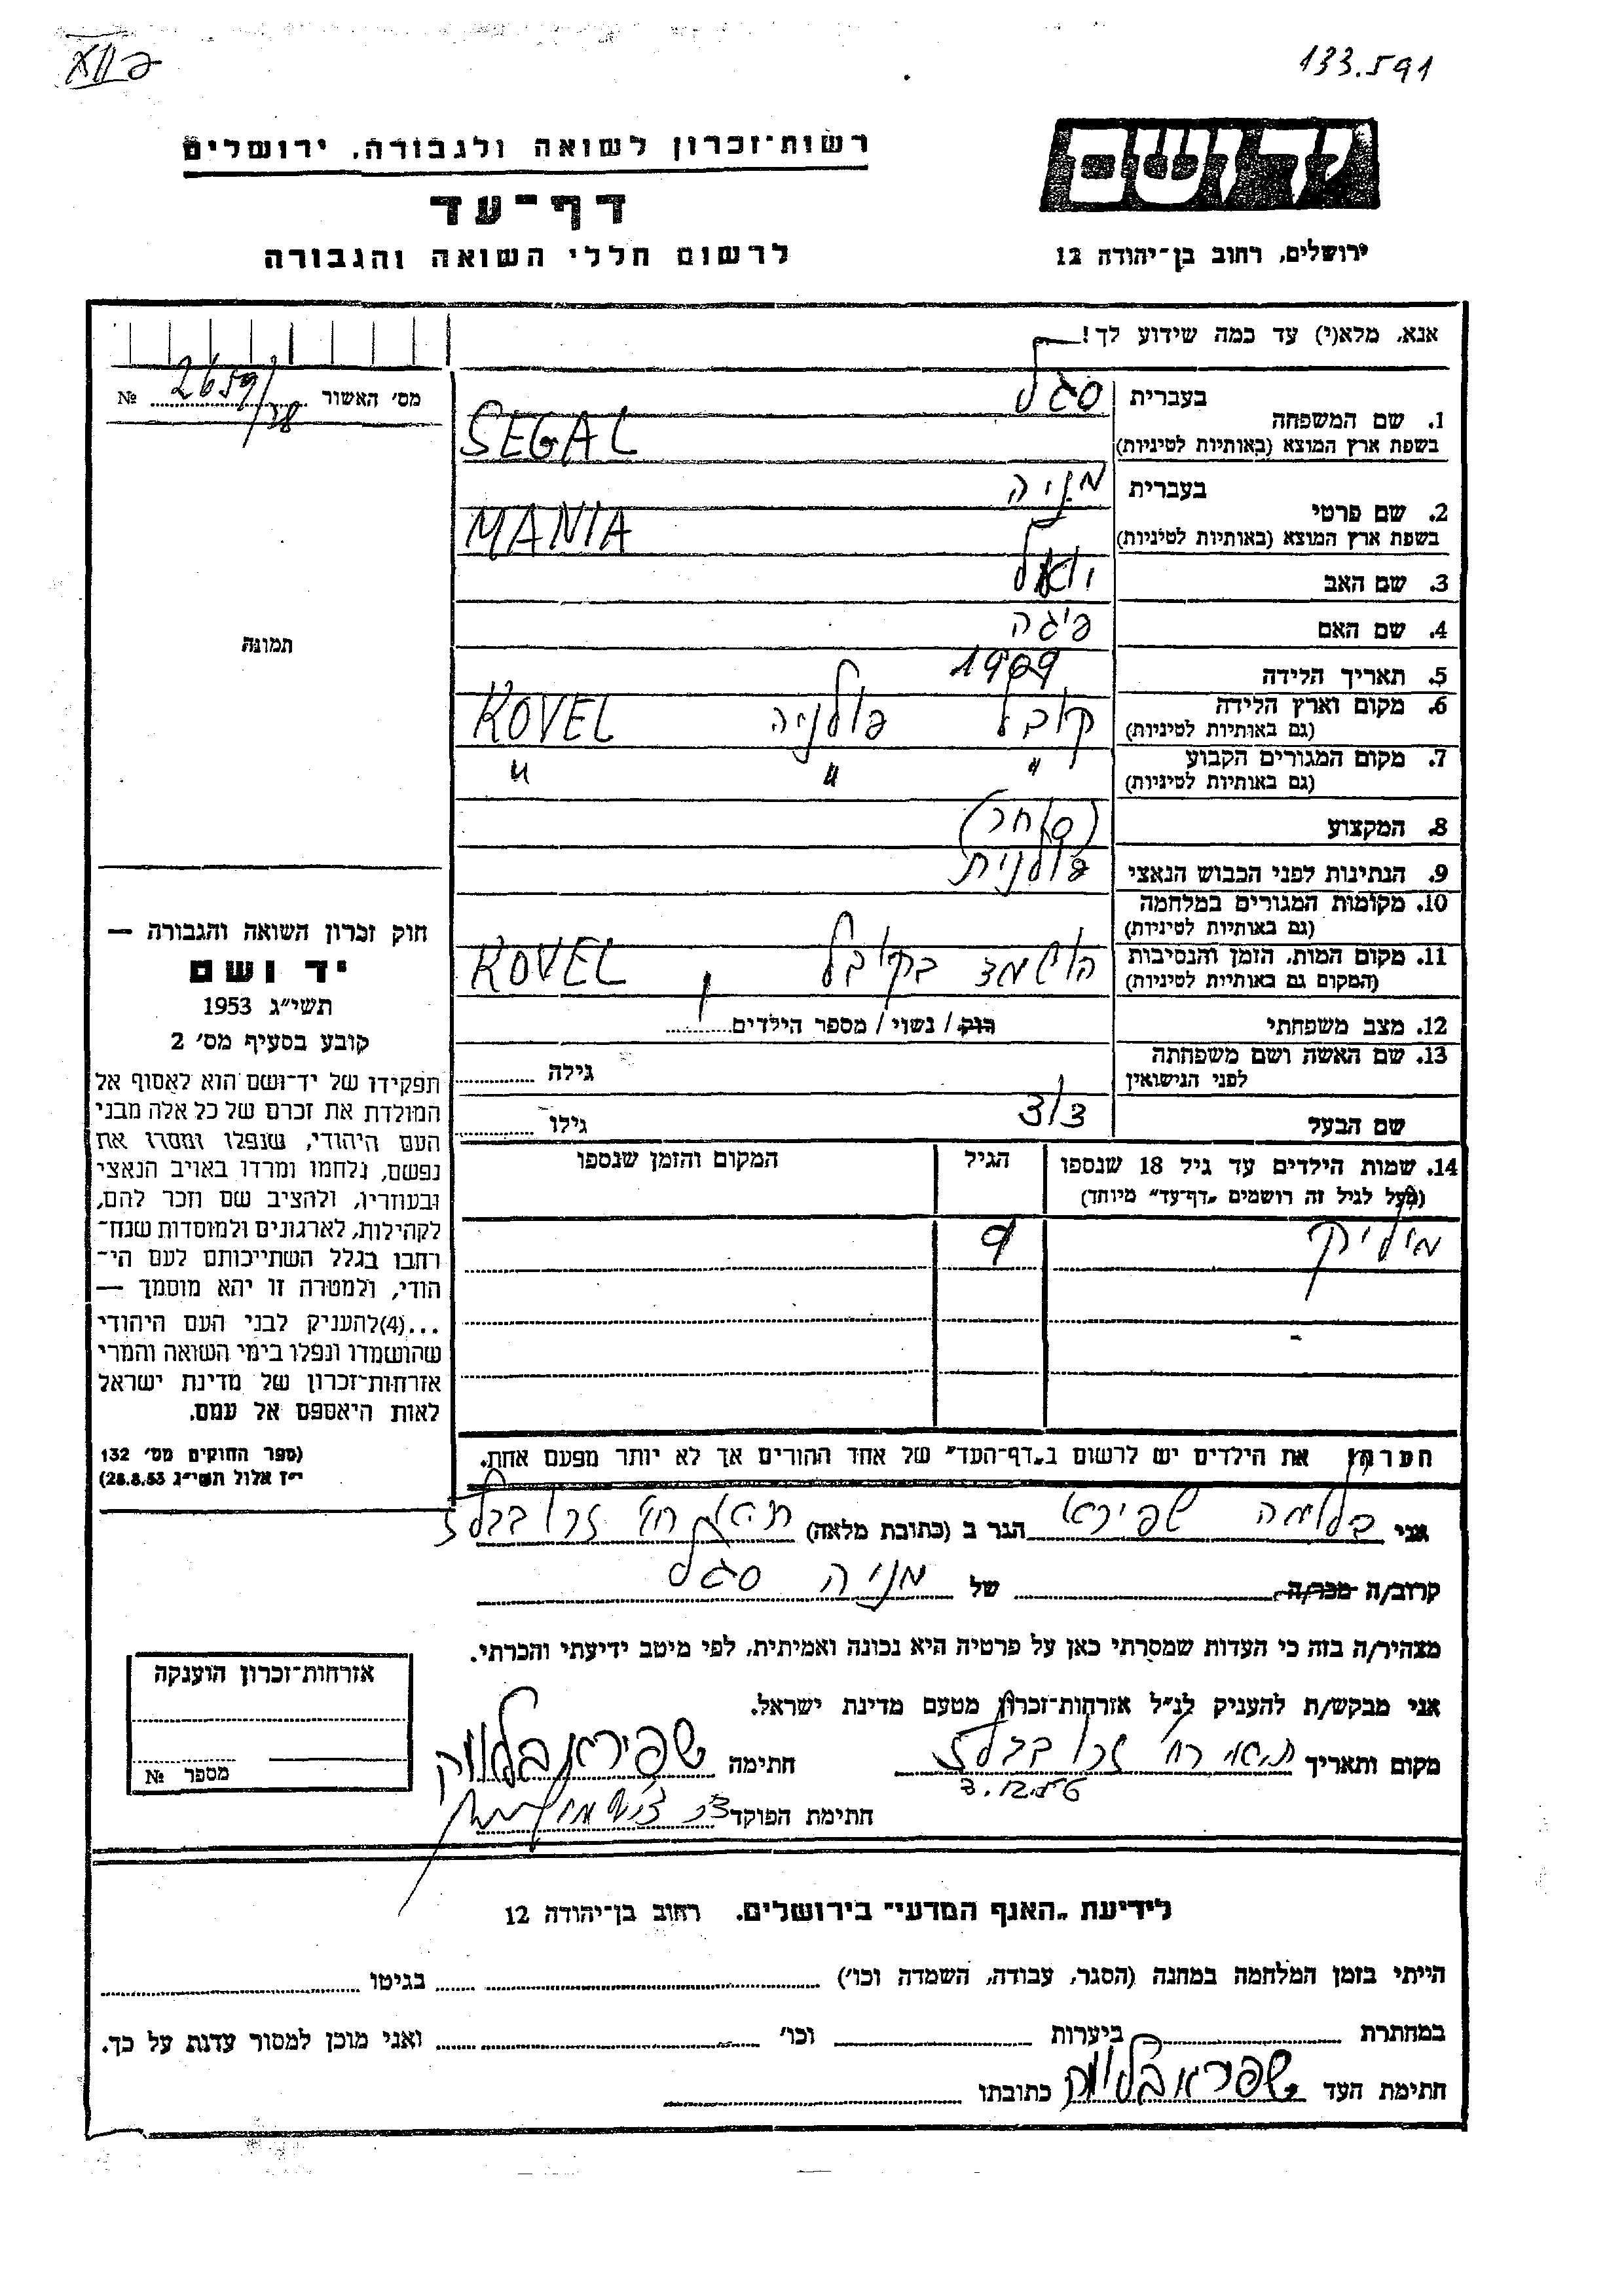 133.591
רשות־זכרון לשואה ולגבורה, ירושלים
יד ושם
דף־עד
ירושלים, רחוב בן־יהודה 12
לרשום חללי השואה והגבורה
אנא, מלא(י) עד כמה שידוע לך!
מס׳ האשור № 2659/38
1. שם המשפחה
בעברית סגל
בשפת ארץ המוצא (באותיות לטיניות) SEGAL
2. שם פרטי
בעברית מניה
בשפת ארץ המוצא (באותיות לטיניות) MANIA
3. שם האב יואל
4. שם האם פיגה
5. תאריך הלידה 1909
6. מקום וארץ הלידה (גם באותיות לטיניות) קובל פולניה KOVEL
7. מקום המגורים הקבוע (גם באותיות לטיניות) " " "
8. המקצוע (סוחר)
9. הנתינות לפני הכבוש הנאצי פולנית
10. מקומות המגורים במלחמה (גם באותיות לטיניות)
11. מקום המות, הזמן והנסיבות (המקום גם באותיות לטיניות) הושמד בקובל KOVEL
12. מצב משפחתי רוק / נשוי / מספר הילדים 1
13. שם האשה ושם משפחתה לפני הנישואין גילה
שם הבעל גילו
14. שמות הילדים עד גיל 18 שנספו
(מעל לגיל זה רושמים „דף־עד״ מיוחד)
הגיל
המקום והזמן שנספו
מיליק 9
הערה: את הילדים יש לרשום ב„דף־העד״ של אחד ההורים אך לא יותר מפעם אחת.
תמונה
חוק זכרון השואה והגבורה —
יד ושם
תשי״ג 1953
קובע בסעיף מס׳ 2
תפקידו של יד־ושם הוא לאסוף אל
המולדת את זכרם של כל אלה מבני
העם היהודי, שנפלו ומסרו את
נפשם, נלחמו ומרדו באויב הנאצי
ובעוזריו, ולהציב שם וזכר להם,
לקהילות, לארגונים ולמוסדות שנח־
רבו בגלל השתייכותם לעם הי־
הודי, ולמטרה זו יהא מוסמך —
...(4)להעניק לבני העם היהודי
שהושמדו ונפלו בימי השואה והמרי
אזרחות־זכרון של מדינת ישראל
לאות היאספם אל עמם.
(ספר החוקים מס׳ 132
י״ז אלול תשי״ג 28.8.53)
אני בלומה שפירא הגר ב (כתובת מלאה)
קרוב/ה מכר/ה של מניה סגל
מצהיר/ה בזה כי העדות שמסרתי כאן על פרטיה היא נכונה ואמיתית, לפי מיטב ידיעתי והכרתי.
אני מבקש/ת להעניק לנ״ל אזרחות־זכרון מטעם מדינת ישראל.
מקום ותאריך חתימה שפירא בלומה
חתימת הפוקד
אזרחות־זכרון הוענקה
מספר №
לידיעת „האגף המדעי״ בירושלים. רחוב בן־יהודה 12
הייתי בזמן המלחמה במחנה (הסגר, עבודה, השמדה וכו׳) בגיטו
במחתרת ביערות וכו׳ ואני מוכן למסור עדות על כך.
חתימת העד שפירא בלומה כתובתו